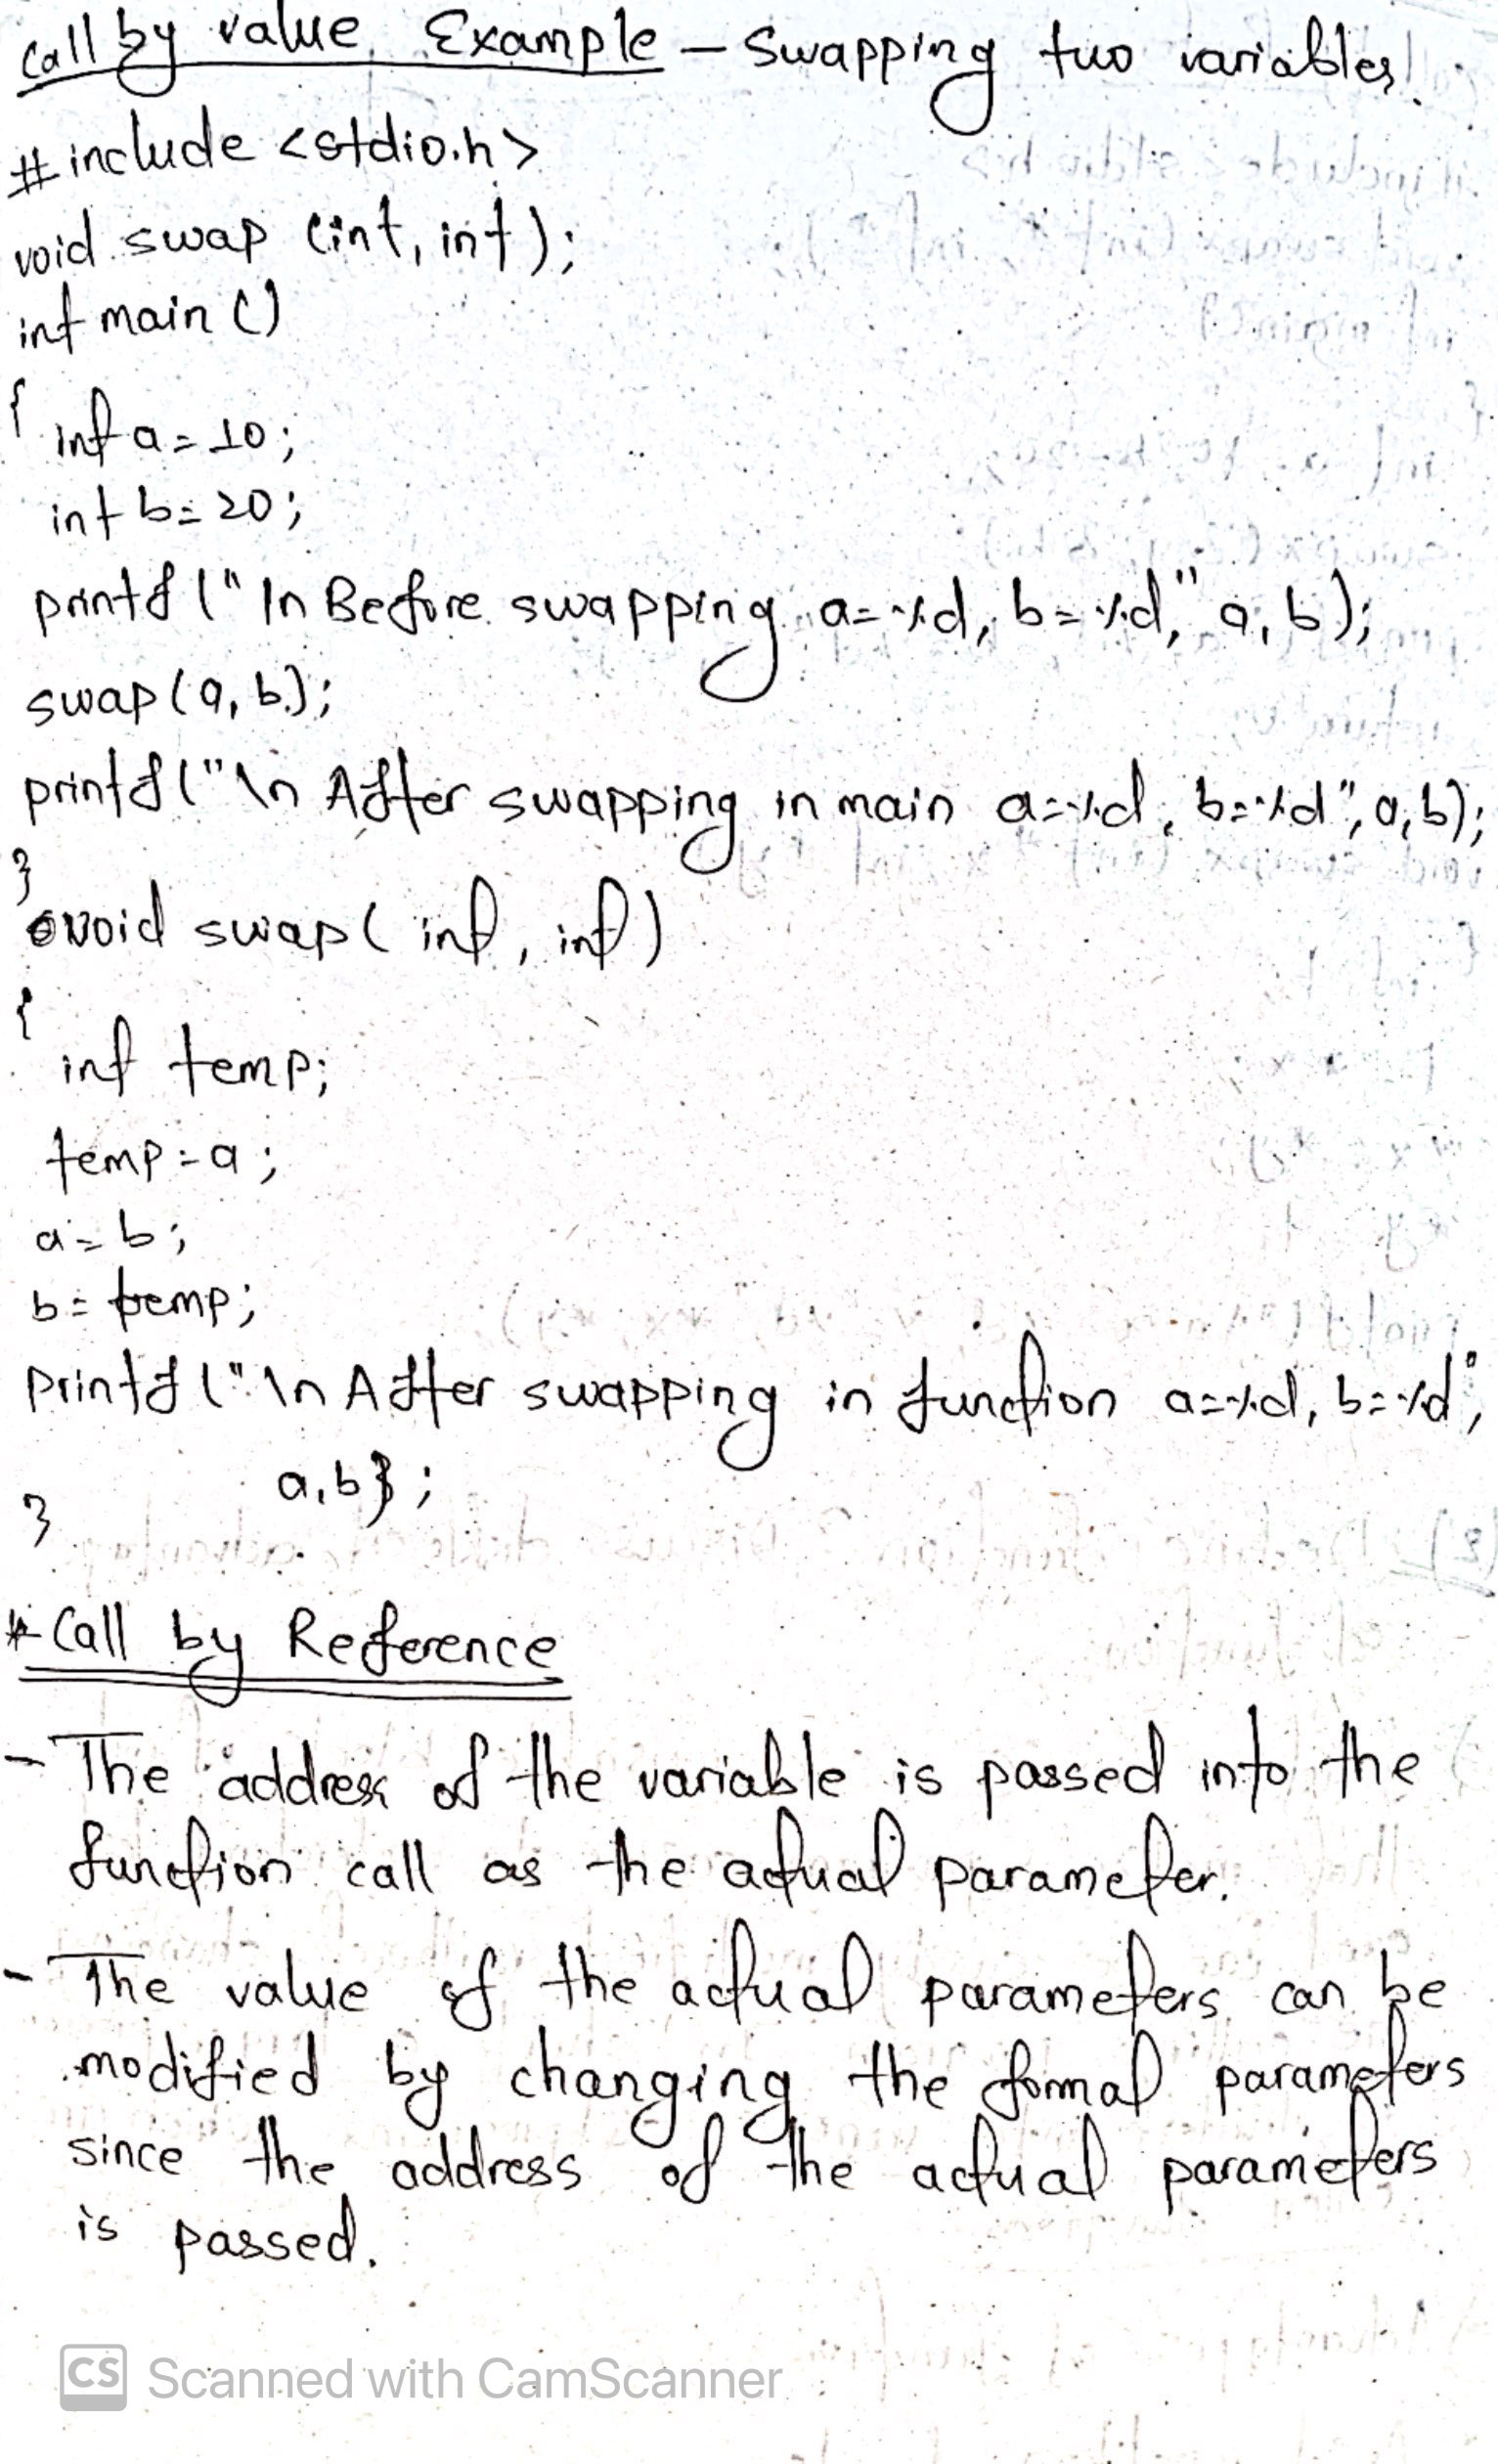 Call by value Example - Swapping two variables.
#include <stdio.h>
void swap (int, int);
int main ()
{
int a = 10;
int b = 20;
printf ("\n Before swapping a=%d, b=%d," a, b);
swap (a, b);
printf ("\n After swapping in main a=%d, b=%d", a, b);
}
void swap ( int, int)
{
int temp;
temp = a;
a = b;
b = temp;
Printf ("\n After swapping in function a=%d, b=%d",
a, b};
}
* Call by Reference
- The address of the variable is passed into the
function call as the actual parameter.
- The value of the actual parameters can be
modified by changing the formal parameters
since the address of the actual parameters
is passed.
CS Scanned with CamScanner